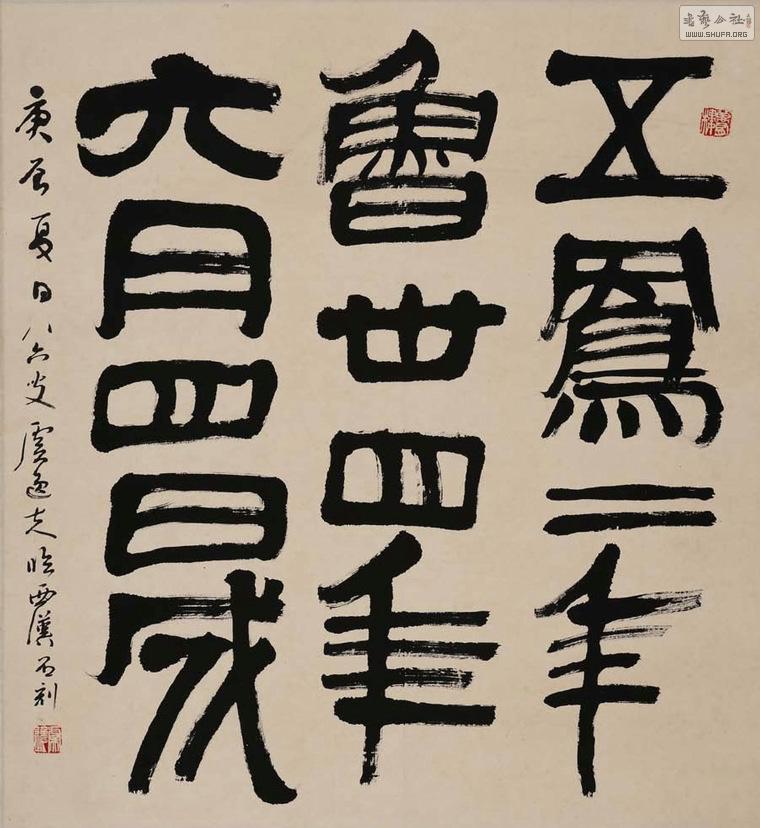 五鳳二年
魯卅四年
六月四日成
庚辰夏日八六叟虞逸夫臨西漢石刻
書藝公社
WWW.SHUFA.ORG